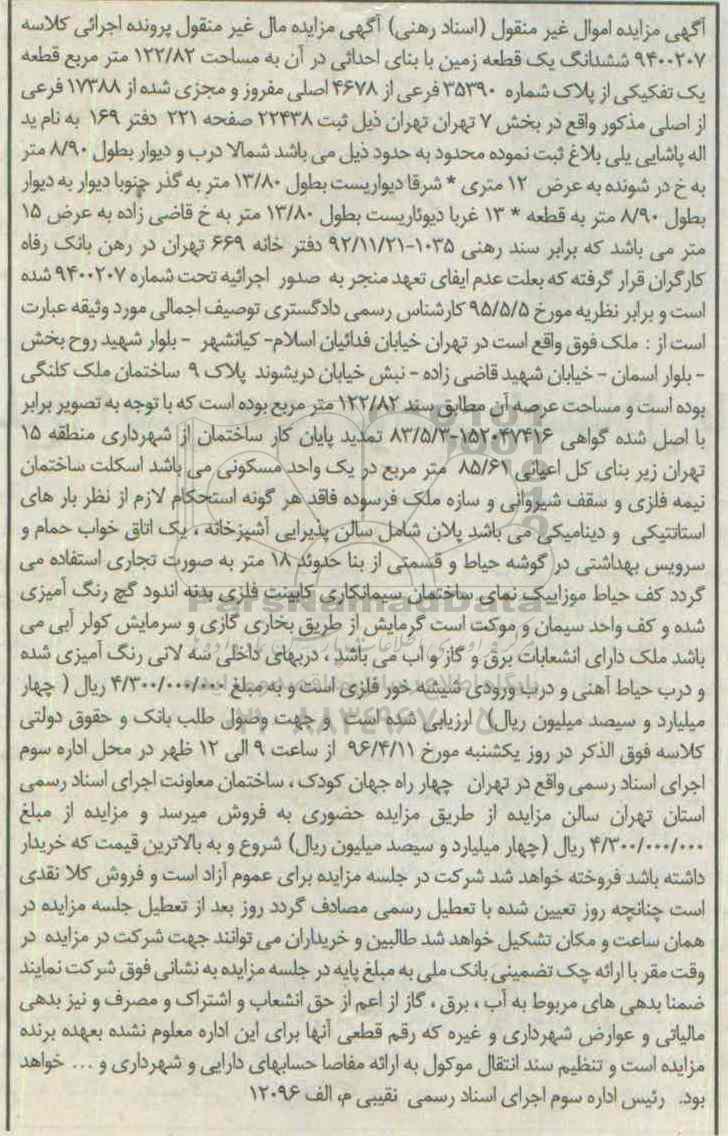 آگهی مزایده اموال غیر منقول (اسناد رهنی) آگهی مزایده مال غیر منقول پرونده اجرائی کلاسه
۹۴۰۰۲۰۷ ششدانگ یک قطعه زمین با بنای احداثی در آن به مساحت ۱۲۲/۸۲ متر مربع قطعه
یک تفکیکی از پلاک شماره ۳۵۳۹۰ فرعی از ۴۶۷۸ اصلی مفروز و مجزی شده از ۱۷۳۸۸ فرعی
از اصلی مذکور واقع در بخش ۷ تهران تهران ذیل ثبت ۲۲۴۳۸ صفحه ۲۲۱ دفتر ۱۶۹ به نام ید
اله پاشایی یلی بلاغ ثبت نموده محدود به حدود ذیل می باشد شمالا درب و دیوار بطول ۸/۹۰ متر
به خ در شونده به عرض ۱۲ متری * شرقا دیواریست بطول ۱۳/۸۰ متر به گذر جنوبا دیوار به دیوار
بطول ۸/۹۰ متر به قطعه * ۱۳ غربا دیوئاریست بطول ۱۳/۸۰ متر به خ قاضی زاده به عرض ۱۵
متر می باشد که برابر سند رهنی ۱۰۳۵-۹۲/۱۱/۲۱ دفتر خانه ۶۶۹ تهران در رهن بانک رفاه
کارگران قرار گرفته که بعلت عدم ایفای تعهد منجر به صدور اجرائیه تحت شماره ۹۴۰۰۲۰۷ شده
است و برابر نظریه مورخ ۹۵/۵/۵ کارشناس رسمی دادگستری توصیف اجمالی مورد وثیقه عبارت
است از : ملک فوق واقع است در تهران خیابان فدائیان اسلام- کیانشهر - بلوار شهید روح بخش
- بلوار اسمان - خیابان شهید قاضی زاده - نبش خیابان دریشوند پلاک ۹ ساختمان ملک کلنگی
بوده است و مساحت عرصه آن مطابق سند ۱۲۲/۸۲ متر مربع بوده است که با توجه به تصویر برابر
با اصل شده گواهی ۱۵۲۰۴۷۴۱۶-۸۳/۵/۳ تمدید پایان کار ساختمان از شهرداری منطقه ۱۵
تهران زیر بنای کل اعیانی ۸۵/۶۱ متر مربع در یک واحد مسکونی می باشد اسکلت ساختمان
نیمه فلزی و سقف شیروانی و سازه ملک فرسوده فاقد هر گونه استحکام لازم از نظر بار های
استاتتیکی و دینامیکی می باشد پلان شامل سالن پذیرایی آشپزخانه ، یک اتاق خواب حمام و
سرویس بهداشتی در گوشه حیاط و قسمتی از بنا حدوئد ۱۸ متر به صورت تجاری استفاده می
گردد کف حیاط موزاییک نمای ساختمان سیمانکاری کابینت فلزی بدنه اندود گچ رنگ آمیزی
شده و کف واحد سیمان و موکت است گرمایش از طریق بخاری گازی و سرمایش کولر آبی می
باشد ملک دارای انشعابات برق و گاز و اب می باشد ، دربهای داخلی سه لاتی رنگ آمیزی شده
و درب حیاط آهنی و درب ورودی شیشه خور فلزی است و به مبلغ ۴/۳۰۰/۰۰۰/۰۰۰ ریال ( چهار
میلیارد و سیصد میلیون ریال) ارزیابی شده است و جهت وصول طلب بانک و حقوق دولتی
کلاسه فوق الذکر در روز یکشنبه مورخ ۹۶/۴/۱۱ از ساعت ۹ الی ۱۲ ظهر در محل اداره سوم
اجرای اسناد رسمی واقع در تهران چهار راه جهان کودک ، ساختمان معاونت اجرای اسناد رسمی
استان تهران سالن مزایده از طریق مزایده حضوری به فروش میرسد و مزایده از مبلغ
۴/۳۰۰/۰۰۰/۰۰۰ ریال (چهار میلیارد و سیصد میلیون ریال) شروع و به بالاترین قیمت که خریدار
داشته باشد فروخته خواهد شد شرکت در جلسه مزایده برای عموم آزاد است و فروش کلا نقدی
است چنانچه روز تعیین شده با تعطیل رسمی مصادف گردد روز بعد از تعطیل جلسه مزایده در
همان ساعت و مکان تشکیل خواهد شد طالبین و خریداران می توانند جهت شرکت در مزایده در
وقت مقر با ارائه چک تضمینی بانک ملی به مبلغ پایه در جلسه مزایده به نشانی فوق شرکت نمایند
ضمنا بدهی های مربوط به آب ، برق ، گاز از اعم از حق انشعاب و اشتراک و مصرف و نیز بدهی
مالیاتی و عوارض شهرداری و غیره که رقم قطعی آنها برای این اداره معلوم نشده بعهده برنده
مزایده است و تنظیم سند انتقال موکول به ارائه مفاصا حسابهای دارایی و شهرداری و ... خواهد
بود. رئیس اداره سوم اجرای اسناد رسمی نقیبی م، الف ۱۲۰۹۶
ParsNamadData